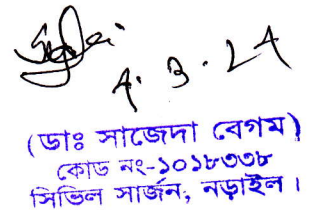 4. 3. 24
(ডাঃ সাজেদা বেগম)
কোড নং-১০১৮৩৩৮
সিভিল সার্জন, নড়াইল।